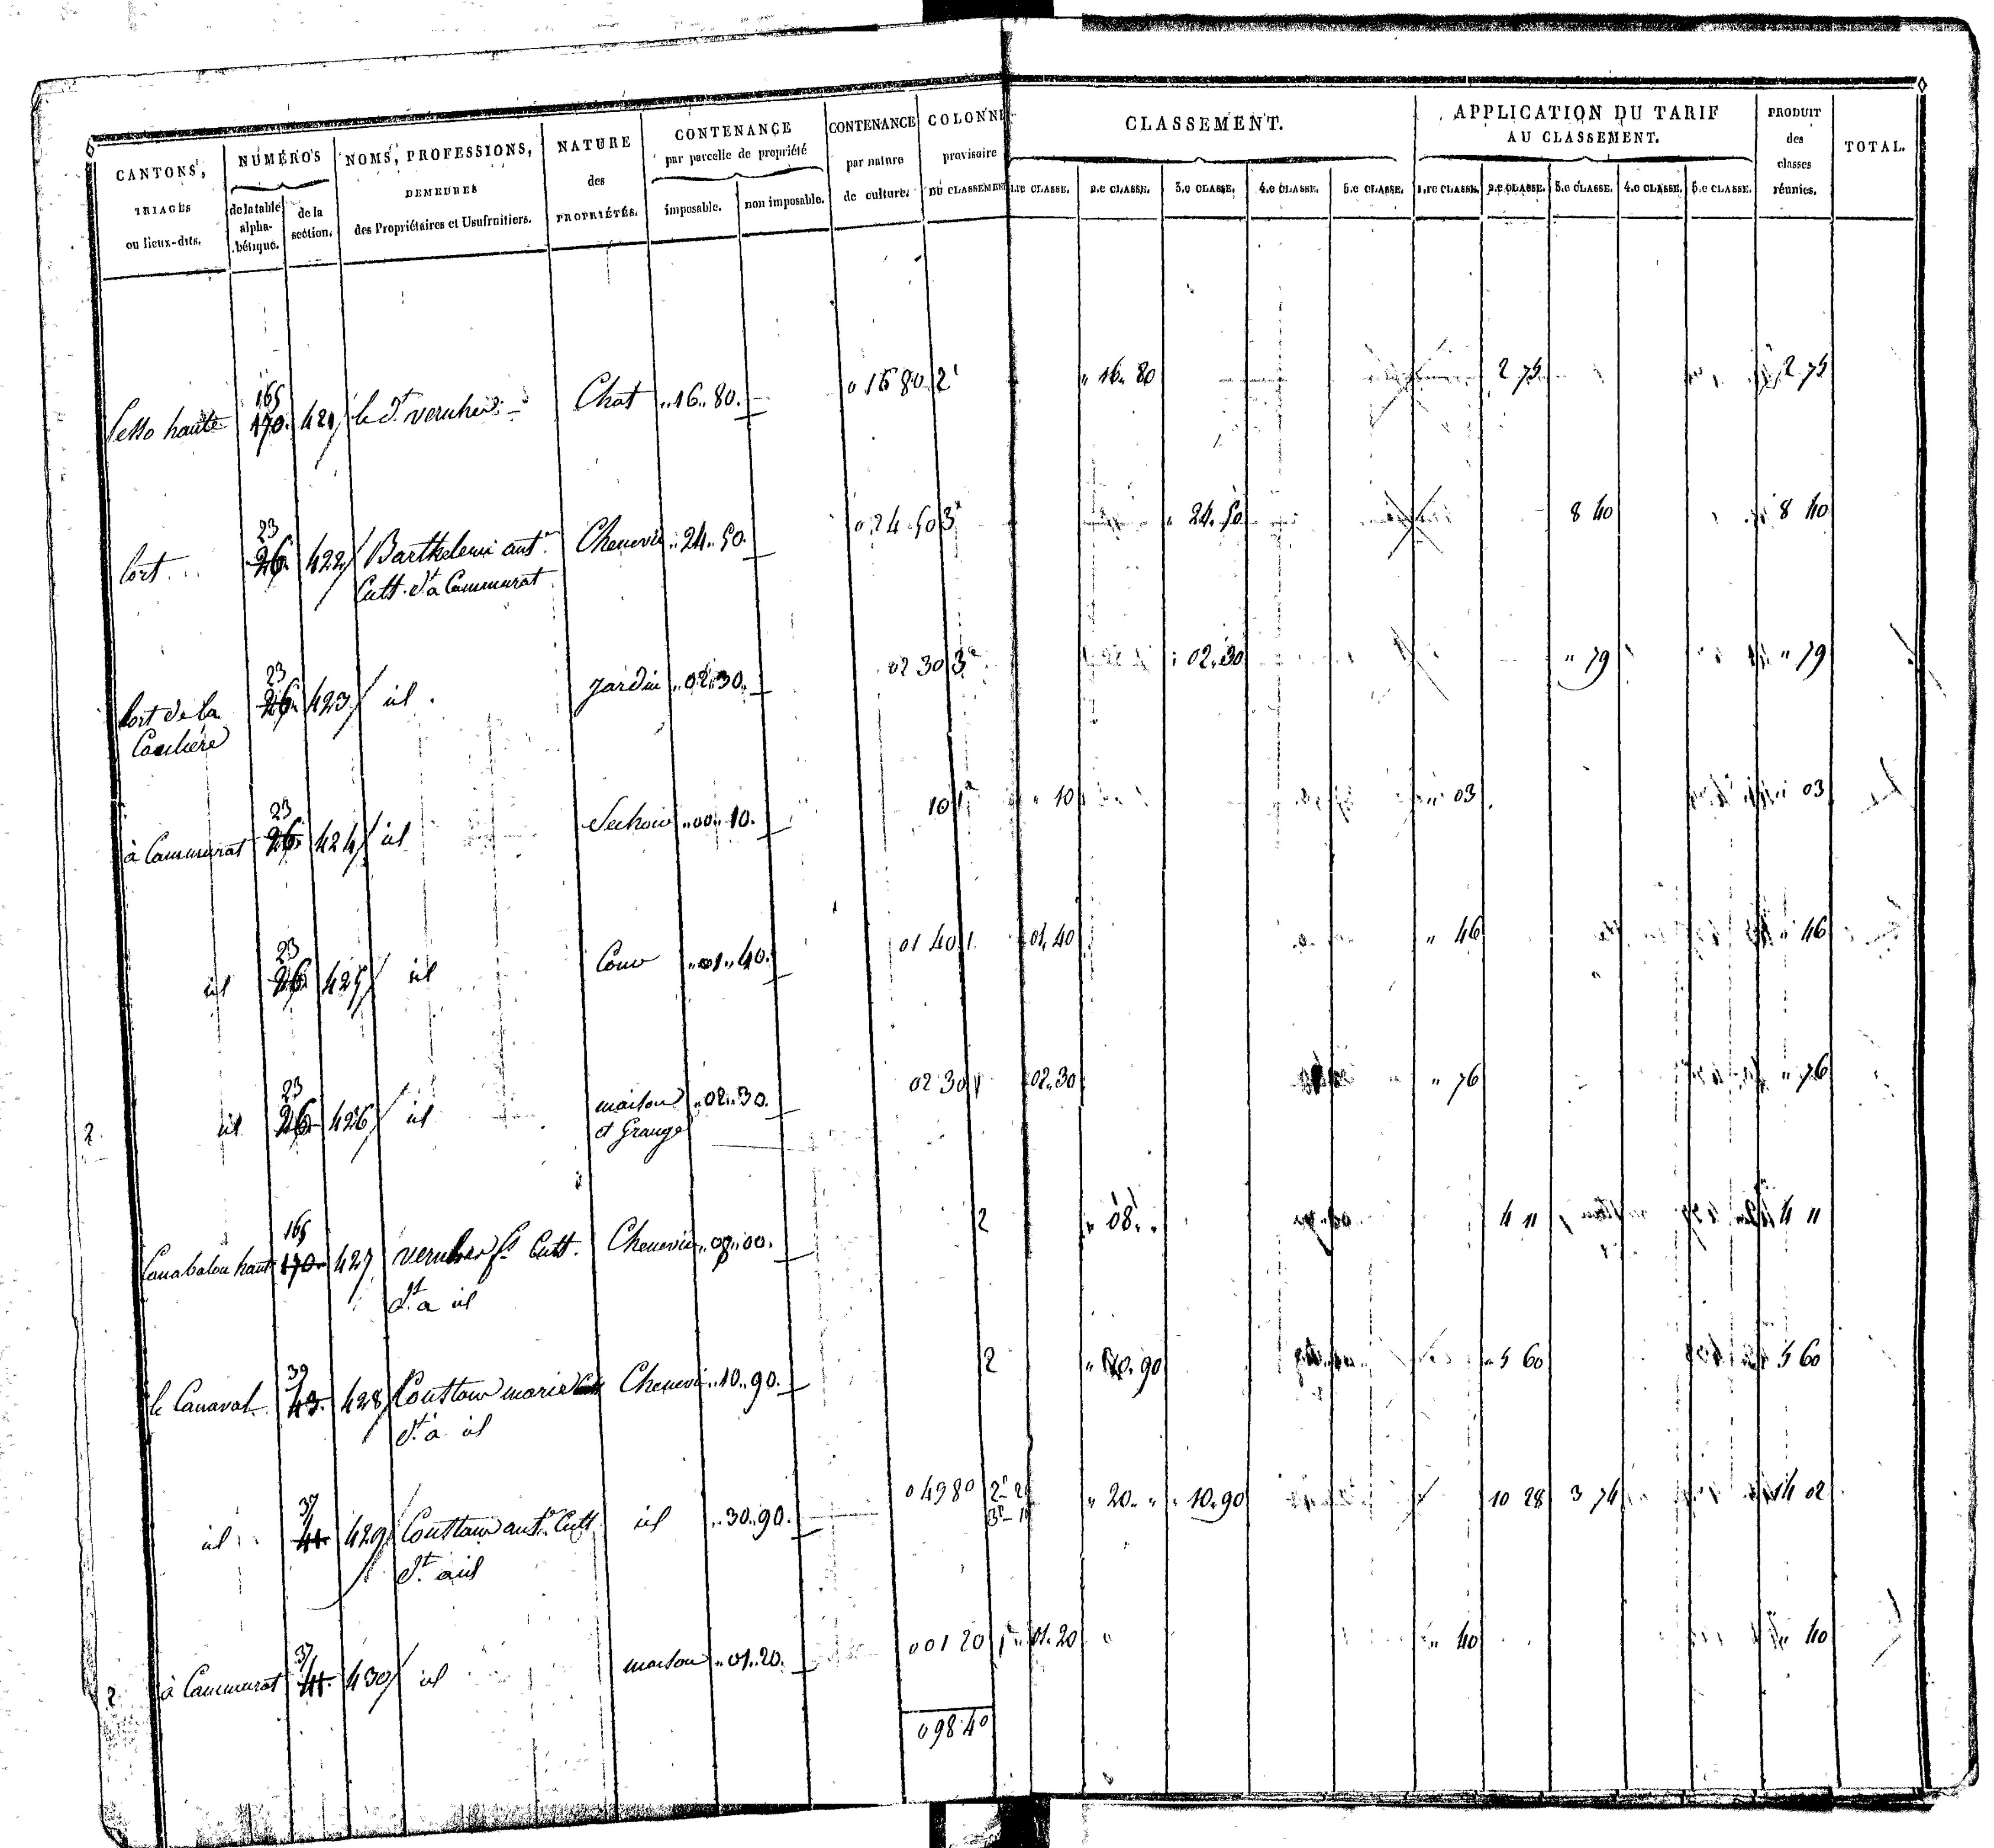 CANTONS, TRIAGES ou lieux-dits. | NUMÉROS de la table alphabétique. | de la section. | NOMS, PROFESSIONS, DEMEURES des Propriétaires et Usufruitiers. | NATURE des PROPRIÉTÉS. | CONTENANCE par parcelle de propriété imposable. | non imposable. | CONTENANCE par nature de culture. | COLONNE provisoire DU CLASSEMENT | CLASSEMENT. 1.re CLASSE. | 2.e CLASSE. | 3.e CLASSE. | 4.e CLASSE. | 5.e CLASSE. | APPLICATION DU TARIF AU CLASSEMENT. 1.re CLASSE. | 2.e CLASSE. | 3.e CLASSE. | 4.e CLASSE. | 5.e CLASSE. | PRODUIT des classes réunies. | TOTAL.
haute 165 170. 421 le dt Chat „16„80. 0 16 80 2 „16„80 2 75 2 75
lort 23 26. 422 Barthelemi ant.e Chenevier „24„50. 0 24 50 3 „24.50 8 40 8 40
Cult. dt à Cammurat
lort de la 23 26. 423 id. jardin „02„30. 02 30 3 „02.30 „79 „79
à Cammurat 23 26. 424 id „00„10. 10 1 „10 „03 03
id 23 26. 425 id Cour „01„40. 01 40 1 01.40 „46 „46
2. id 23 26 426 id maison „02„30. 02 30 1 02.30 „76 „76
et Grange
haut 165 170 427 fs Cult. Chenevier „08„00. 2 „08„ 4 11 4 11
dt à id
le Canaval 39 43. 428 marie Chenevier „10„90. 2 „10.90 5 60 5 60
dt à id
id 37 41 429 ant.e Cult. id „30„90. 0 49 80 2e 2 3e 1 „20„ „10.90 10 28 3 74 14 02
dt à id
2 à Cammurat 37 41. 430 id maison „01„20. 0 01 20 1 01.20 „40 „40
0 98 40